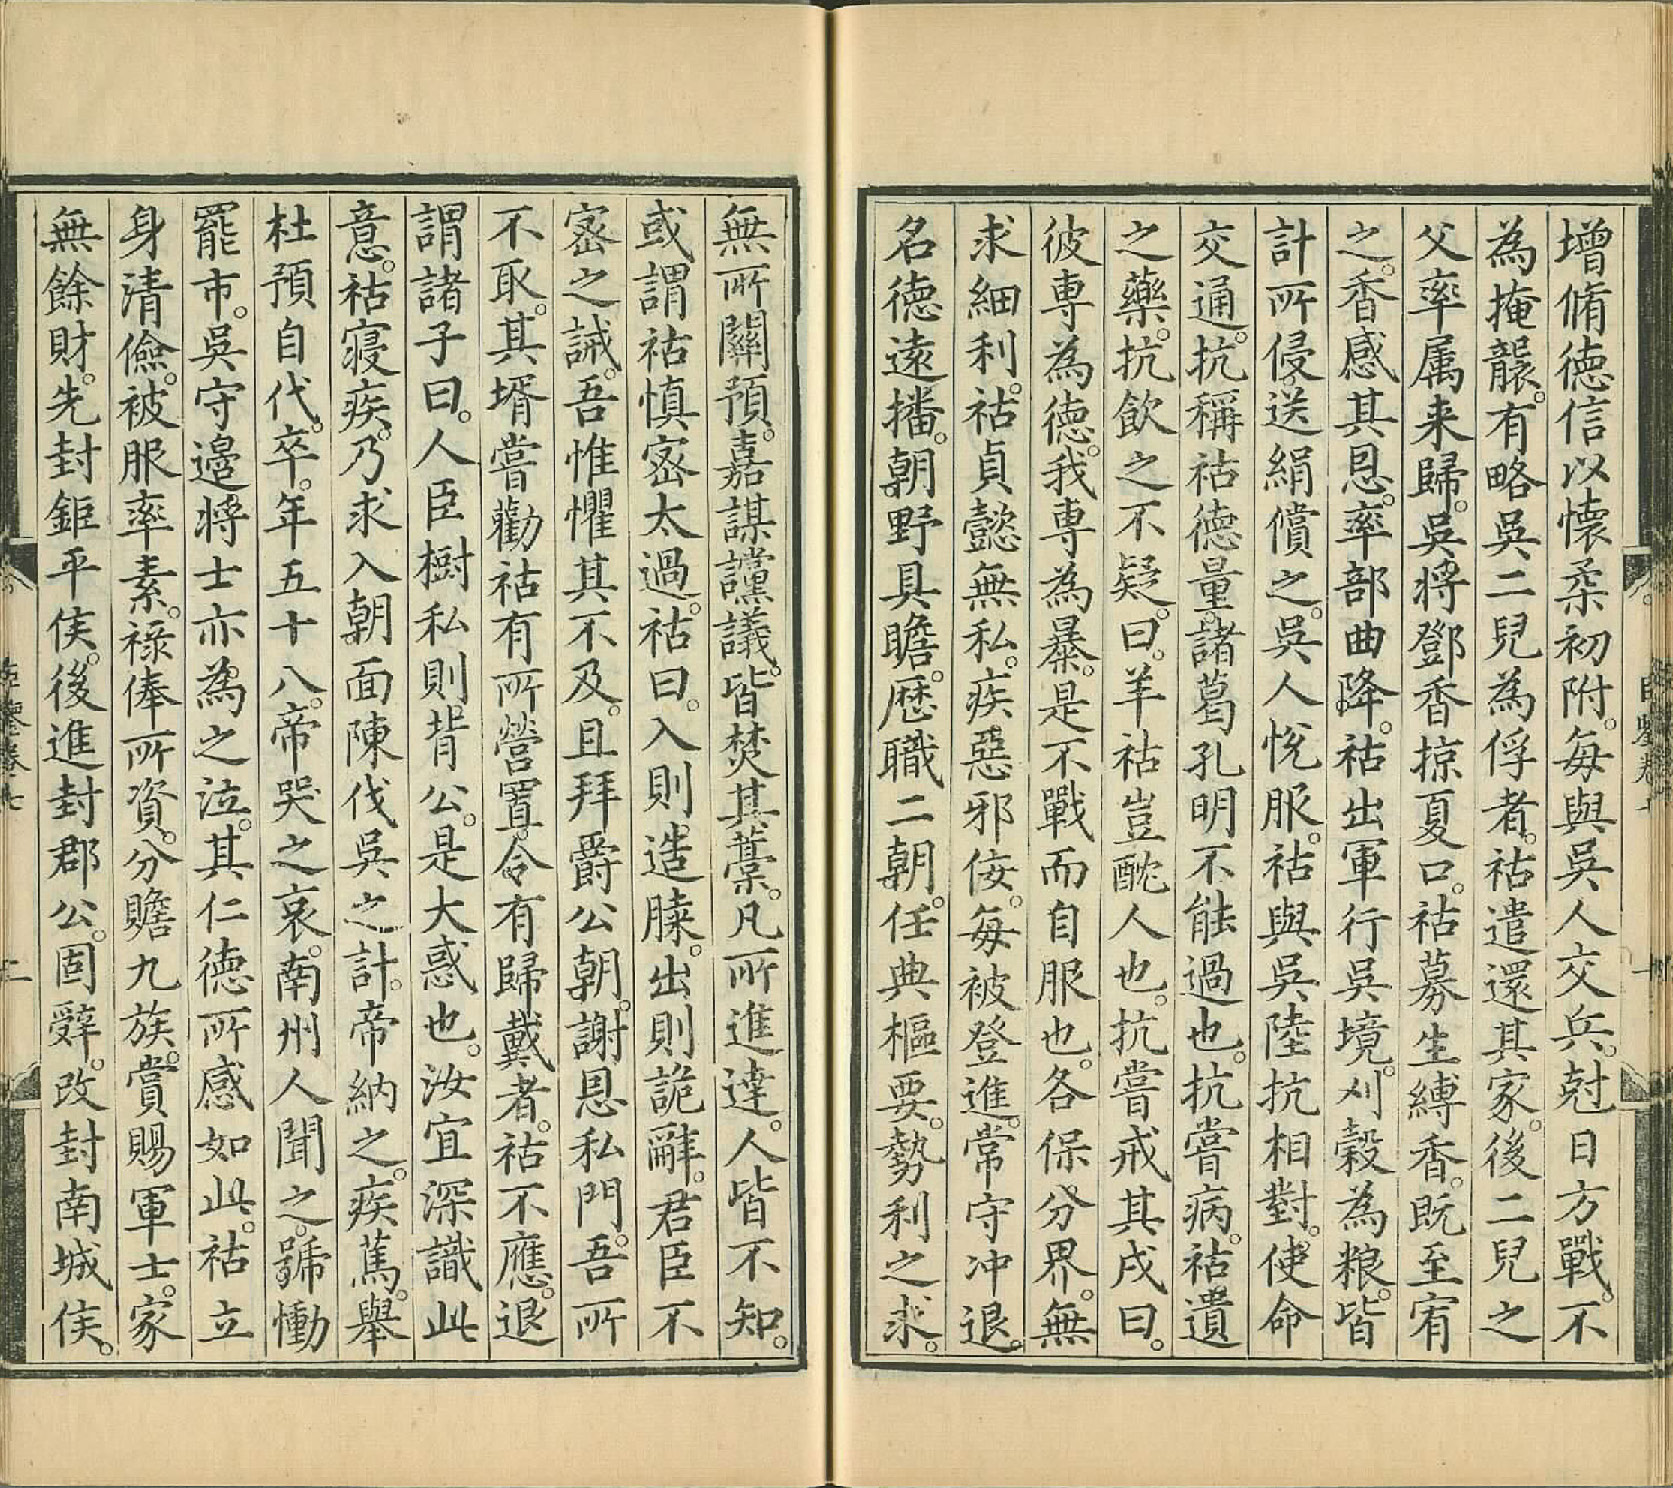 增脩德信以懷柔初附。每與吳人交兵。尅日方戰。不
為掩襲。有略吳二兒為俘者。祜遣還其家。後二兒之
父率属来歸。吳將鄧香掠夏口。祜募生縛香。既至宥
之。香感其恩。率部曲降。祜出軍行吳境。刈穀為粮。皆
計所侵。送絹償之。吳人悅服。祜與吳陸抗相對。使命
交通。抗稱祜德量。諸葛孔明不能過也。抗嘗病。祜遺
之藥。抗飲之不疑。曰。羊祜豈酖人也。抗嘗戒其戍曰。
彼專為德。我專為暴。是不戰而自服也。各保分界。無
求細利。祜貞愨無私。疾惡邪佞。每被登進。常守冲退。
名德遠播。朝野具瞻。歷職二朝。任典樞要。勢利之求。
無所關預。嘉謀讜議。皆焚其藁。凡所進達。人皆不知。
或謂祜慎宻太過。祜曰。入則造膝。出則詭辭。君臣不
宻之誡。吾惟懼其不及。且拜爵公朝。謝恩私門。吾所
不取。其壻嘗勸祜有所營置。令有歸戴者。祜不應。退
謂諸子曰。人臣樹私則背公。是大惑也。汝宜深識此
意。祜寢疾。乃求入朝面陳伐吳之計。帝納之。疾篤。舉
杜預自代。卒。年五十八。帝哭之哀。南州人聞之。號慟
罷市。吳守邊將士亦為之泣。其仁德所感如此。祜立
身清儉。被服率素。祿俸所資。分贍九族。賞賜軍士。家
無餘財。先封鉅平侯。後進封郡公。固辤。改封南城侯。